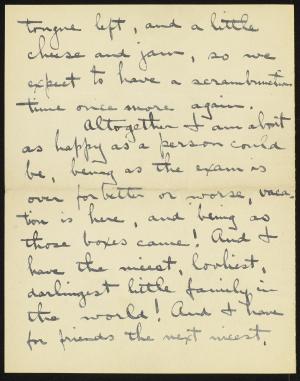 tongue left, and a little
cheese and jam, so we
expect to have a scrumbunctious
time once more again.
Altogether I am about
as happy as a person could
be, being as the exam is
over for better or worse, vaca-
tion is here, and being as
those boxes came! And I
have the nicest, lovliest,
darlingest little family in
the world! And I have
for friends the next nicest,